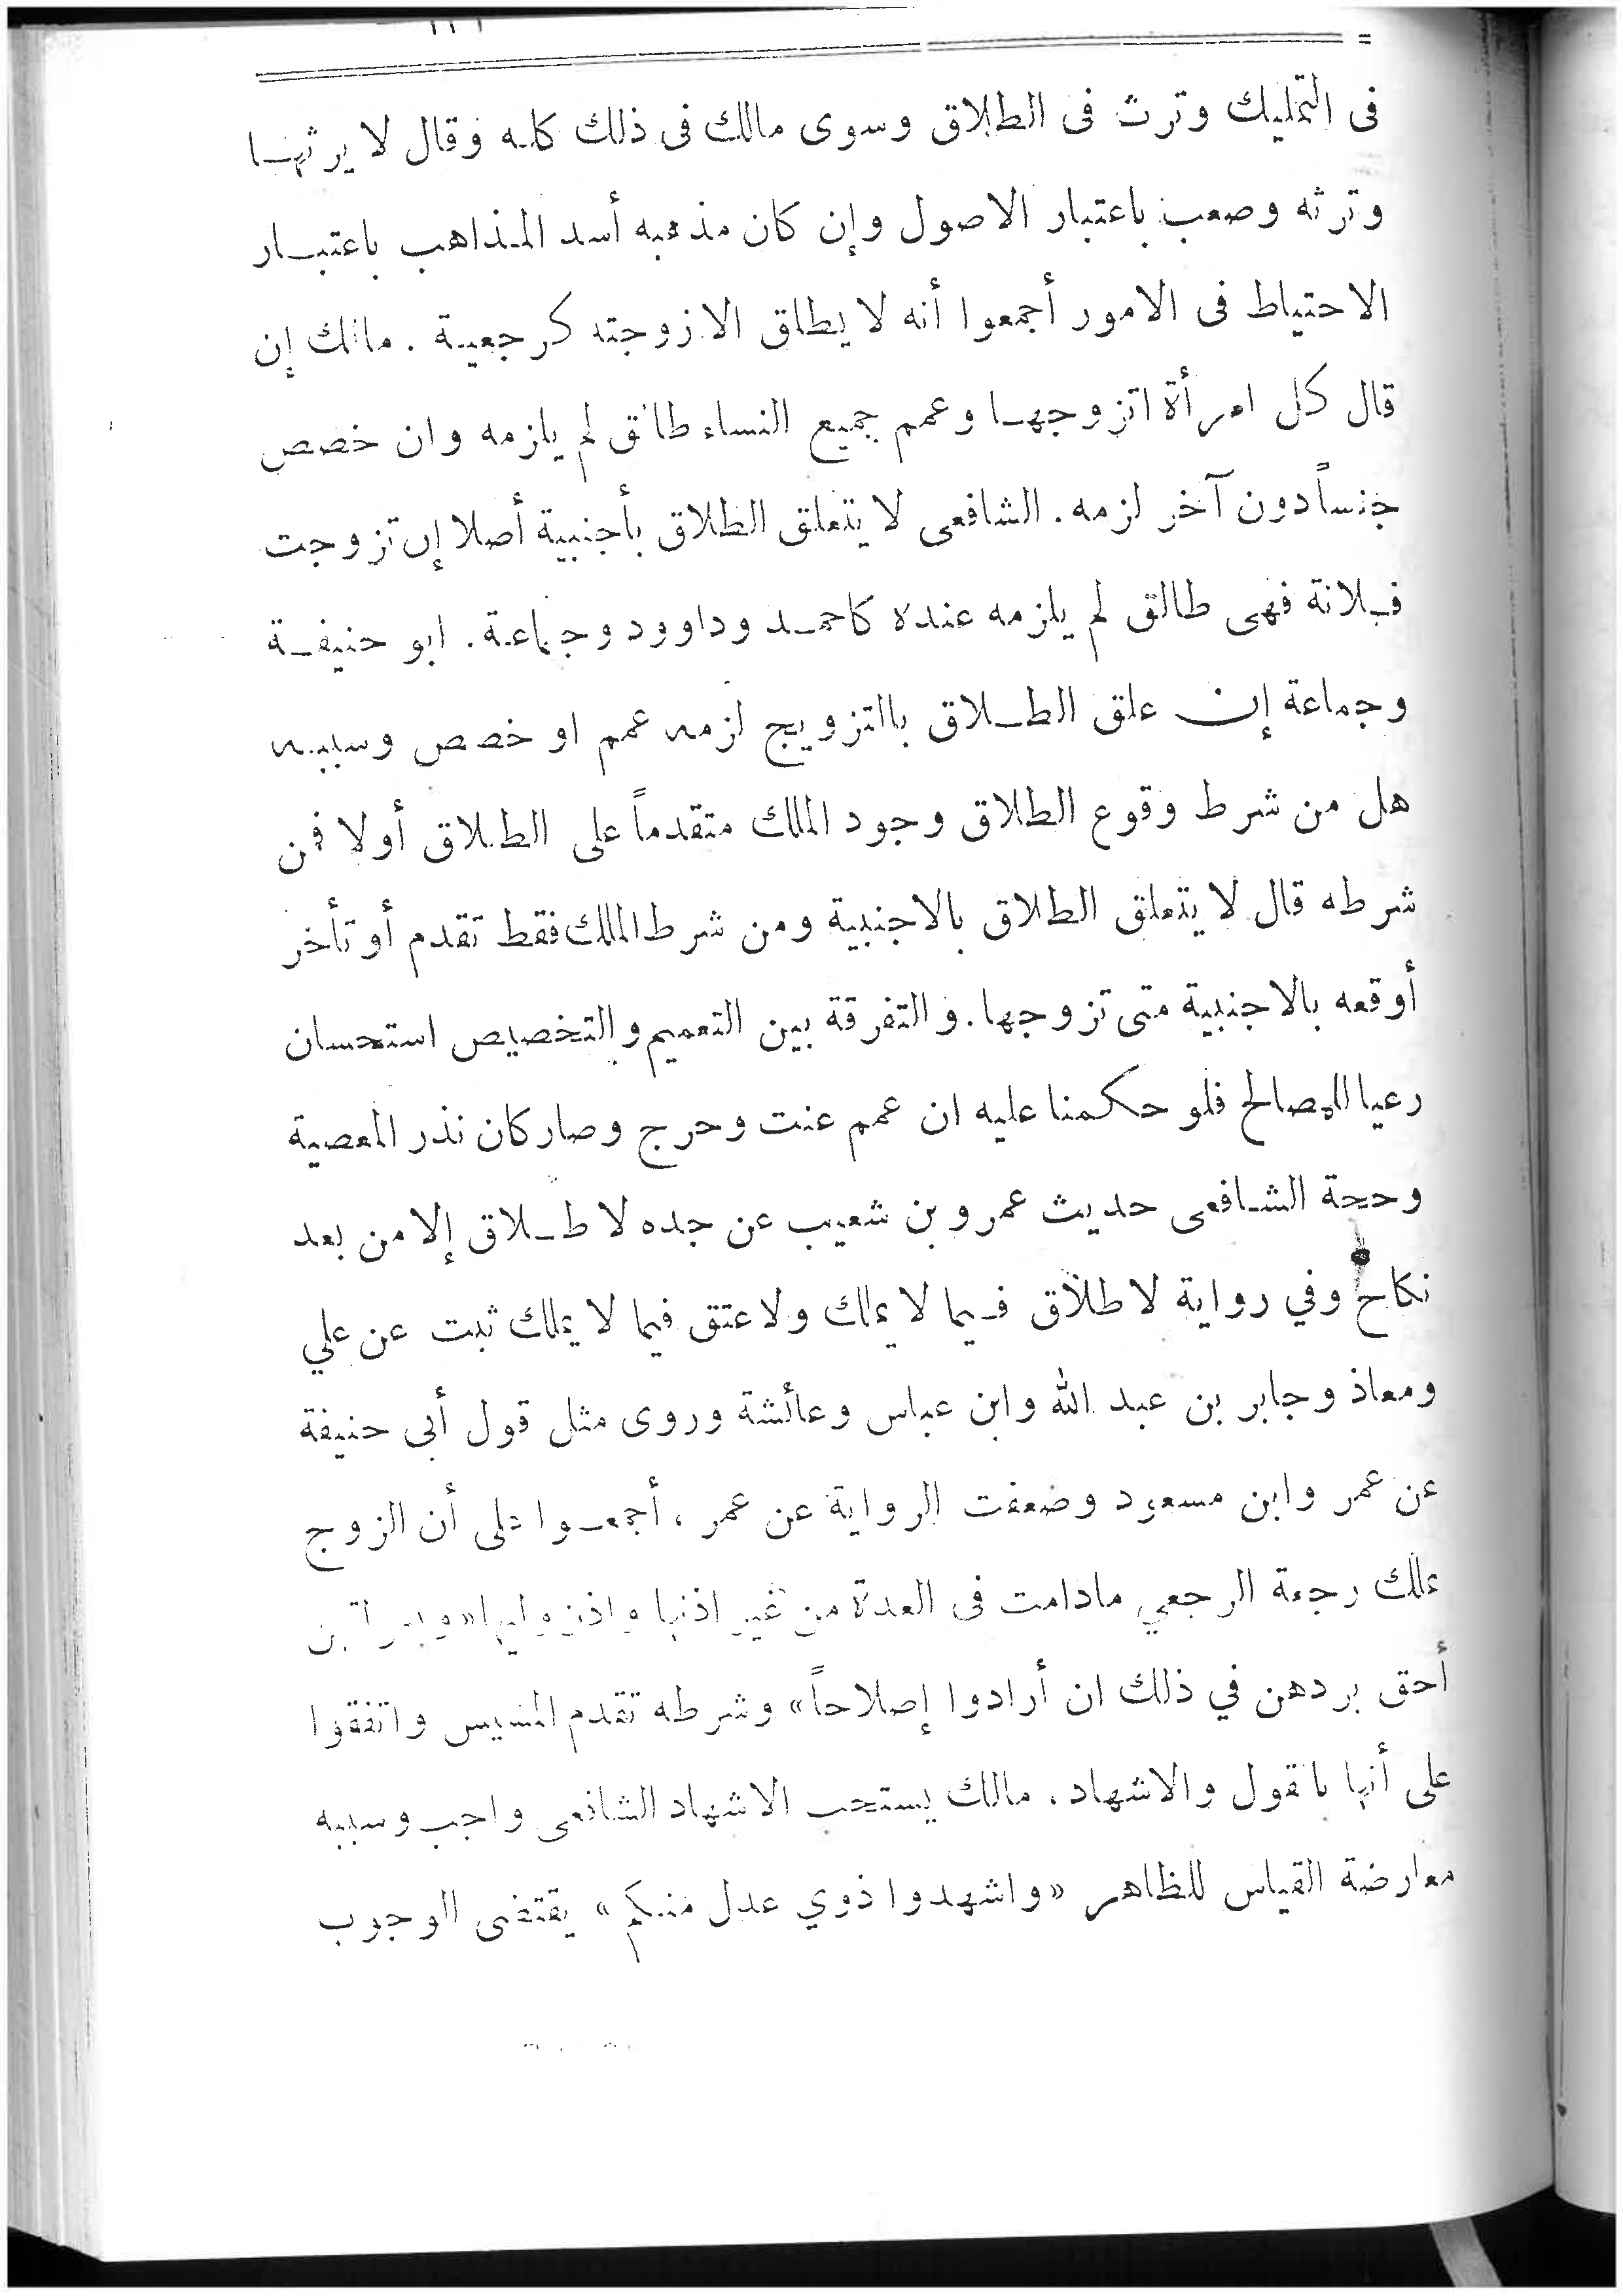 فى التمليك وترث فى الطلاق وسوى مالك فى ذلك كله وقال لا يرثها
وترثه وصعب باعتبار الاصول وإن كان مذهبه أسد المذاهب باعتبار
الاحتياط فى الامور أجمعوا أنه لا يطلق الا زوجته كرجعية . مالك إن
قال كل امرأة اتزوجها وعمم جميع النساء طالق لم يلزمه وان خصص
جنساً دون آخر لزمه . الشافعى لا يتعلق الطلاق بأجنبية أصلا إن تزوجت
فلانة فهى طالق لم يلزمه عنده كاحمد وداوود وجماعة . ابو حنيفة
وجماعة إن علق الطلاق بالتزويج لزمه عمم او خصص وسببه
هل من شرط وقوع الطلاق وجود الملك متقدماً على الطلاق أولا فمن
شرطه قال لا يتعلق الطلاق بالاجنبية ومن شرط الملك فقط تقدم أو تأخر
أوقعه بالاجنبية متى تزوجها . والتفرقة بين التعميم والتخصيص استحسان
رعيا للمصالح فلو حكمنا عليه ان عمم عنت وحرج وصار كان نذر المعصية
وحجة الشافعى حديث عمرو بن شعيب عن جده لا طلاق إلا من بعد
نكاح وفي رواية لا طلاق فيما لا يملك ولا عتق فيما لا يملك ثبت عن علي
ومعاذ وجابر بن عبد الله وابن عباس وعائشة وروى مثل قول أبى حنيفة
عن عمر وابن مسعود وضعفت الرواية عن عمر ، أجمعوا على أن الزوج
يملك رجعة الرجعي مادامت فى العدة من غير اذنها واذن وليها «وبعولتهن
أحق بردهن في ذلك ان أرادوا إصلاحاً» وشرطه تقدم المسيس واتفقوا
على أنها بالقول والاشهاد . مالك يستحب الاشهاد الشافعى واجب وسببه
معارضة القياس للظاهر «واشهدوا ذوي عدل منكم» يقتضى الوجوب